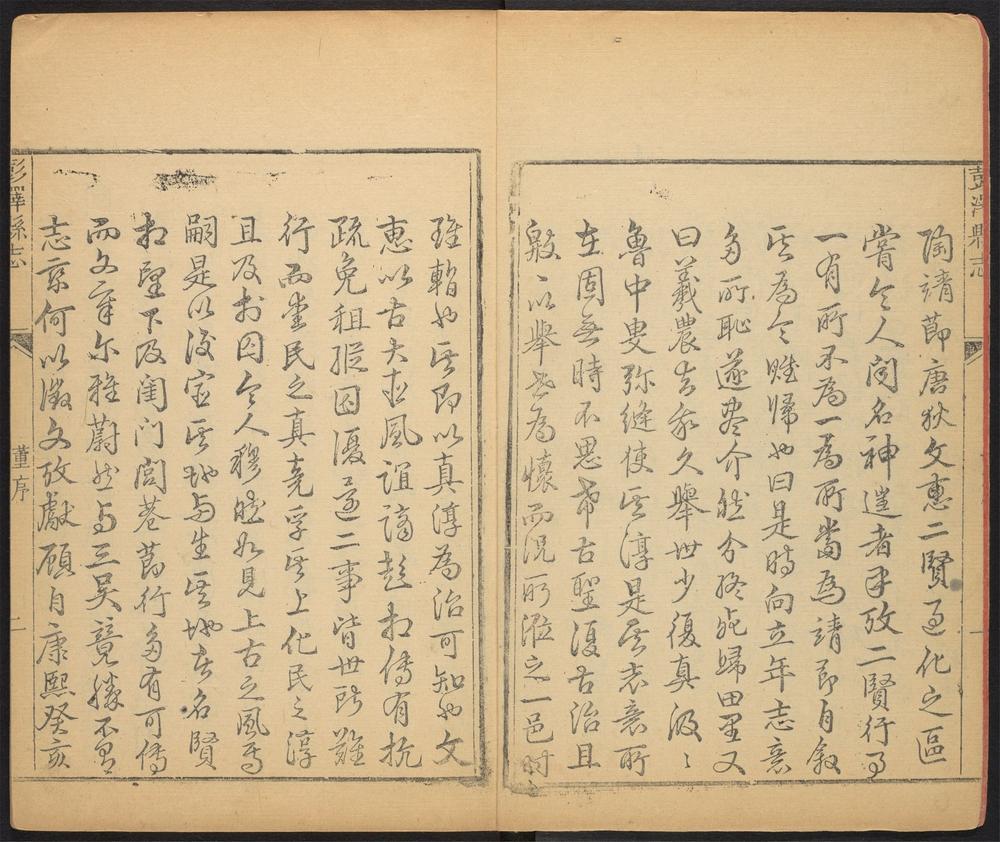 彭澤縣志
一
陶靖節唐狄文惠二賢過化之區
嘗令人聞名神遑者予攷二賢行事
一有所不為一為所當為靖節自敘
其為令賦歸也曰是時向立年志意
多所恥遂盡介然分終死歸田里又
曰羲農去我久舉世少復真汲〻
魯中叟彌縫使其淳是其志意所
在固無時不思希古聖復古治且
欵〻以舉世為懷而況所涖之一邑時之
雖暫也其即以真淳為治可知也文
惠以古大臣風誼謫彭相傳有抗
疏免租縱囚復還二事皆世所難
行而當民之真竟孚其上化民之淳
且及於囚令人穆然如見上古之風焉
嗣是以後宦其地與生其地者名賢
相望下及閨門閭巷節行多有可傳
而文章爾雅蔚然與三吳競勝不有
志乘何以徵文攷獻顧自康熙癸亥
彭澤縣志
董序
二